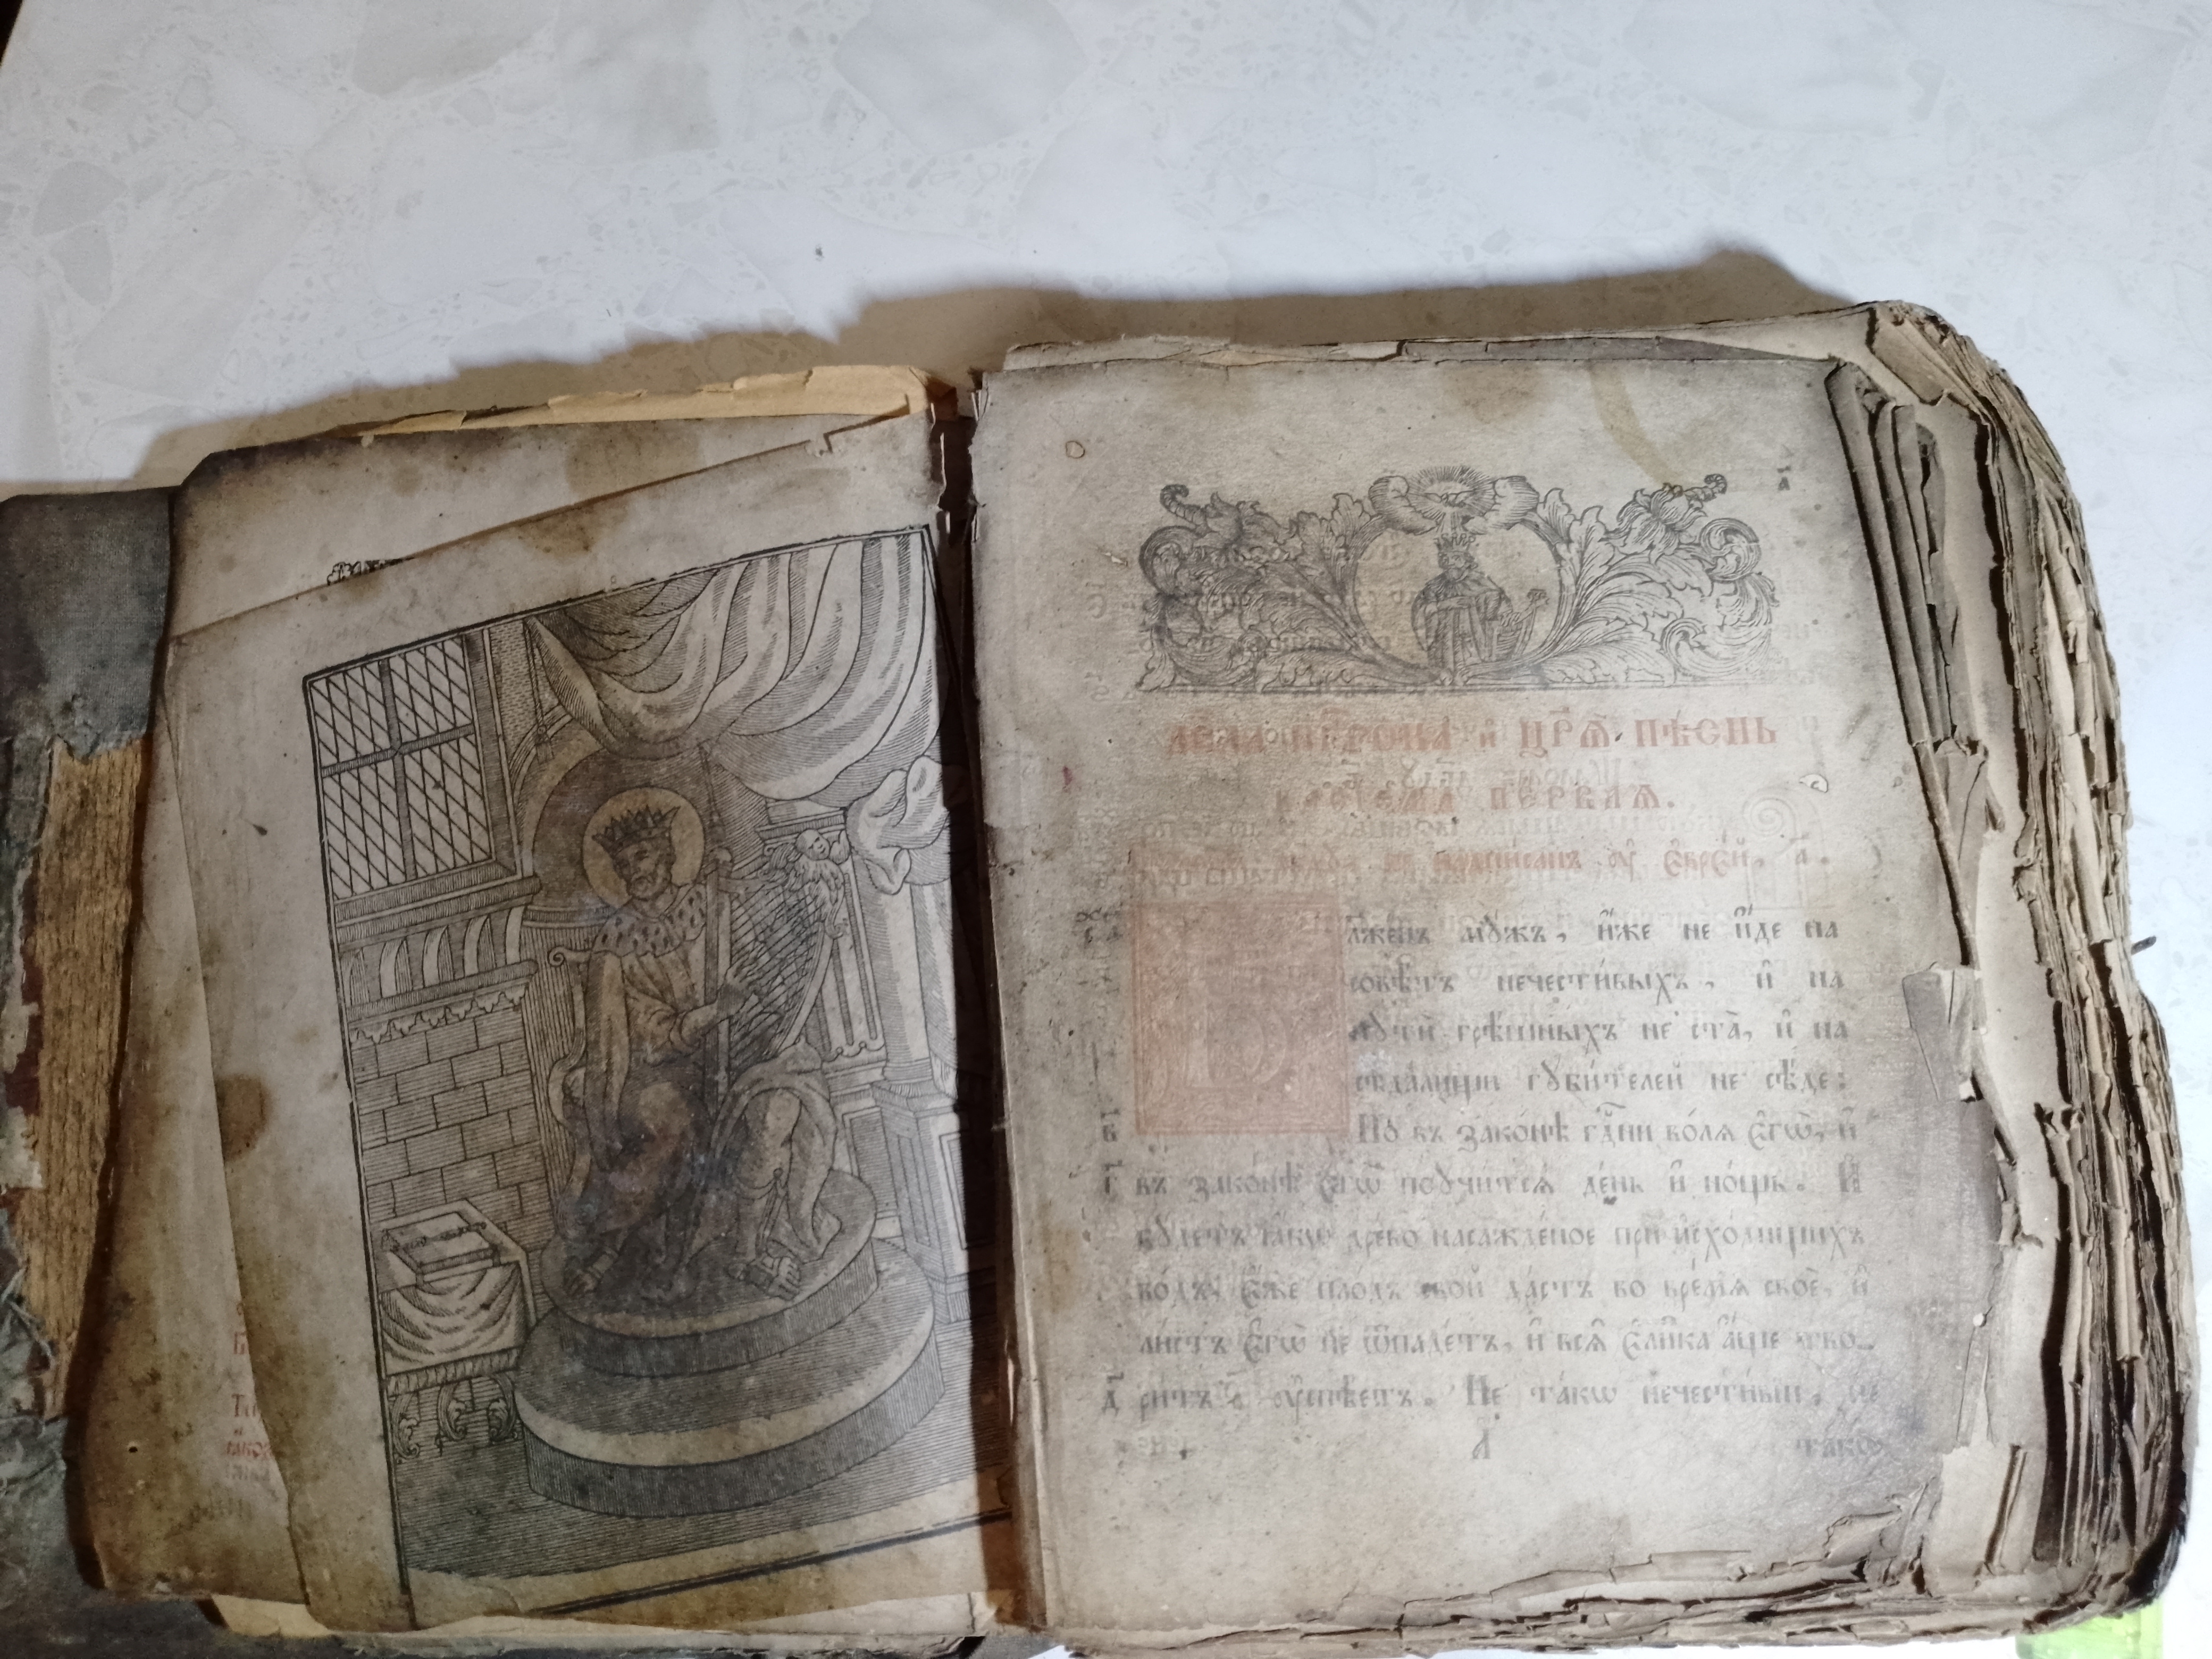 а҃
дв҃да прⷪ҇ро́ка и҆ цр҃ѧ̀ пѣ́снь
каѳі́сма пе́рваѧ.
не надпи́санъ ᲂу҆ є҆вре́й, а҃.
Бл҃же́нъ мꙋ́жъ, и҆́же не и҆́де на
совѣ́тъ нечести́выхъ, и҆ на
пꙋтѝ грѣ́шныхъ не ста̀, и҆ на
сѣда́лищи гꙋби́телей не сѣ́де:
в҃ Но въ зако́нѣ гдⷭ҇ни во́лѧ є҆гѡ̀, и҆
г҃ въ зако́нѣ є҆гѡ̀ поꙋчи́тсѧ де́нь и҆ но́щь. И҆
бꙋ́детъ ꙗ҆́кѡ дре́во насажде́ное при и҆схо́дищихъ
во́дъ, є҆́же пло́дъ сво́й да́стъ во вре́мѧ своѐ, и҆
ли́стъ є҆гѡ̀ не ѿпаде́тъ, и҆ всѧ̑ є҆ли̑ка а҆́ще тво-
д҃ ри́тъ ᲂу҆спѣ́етъ. Не та́кѡ нечести́вїи, не
А҃ та́кѡ